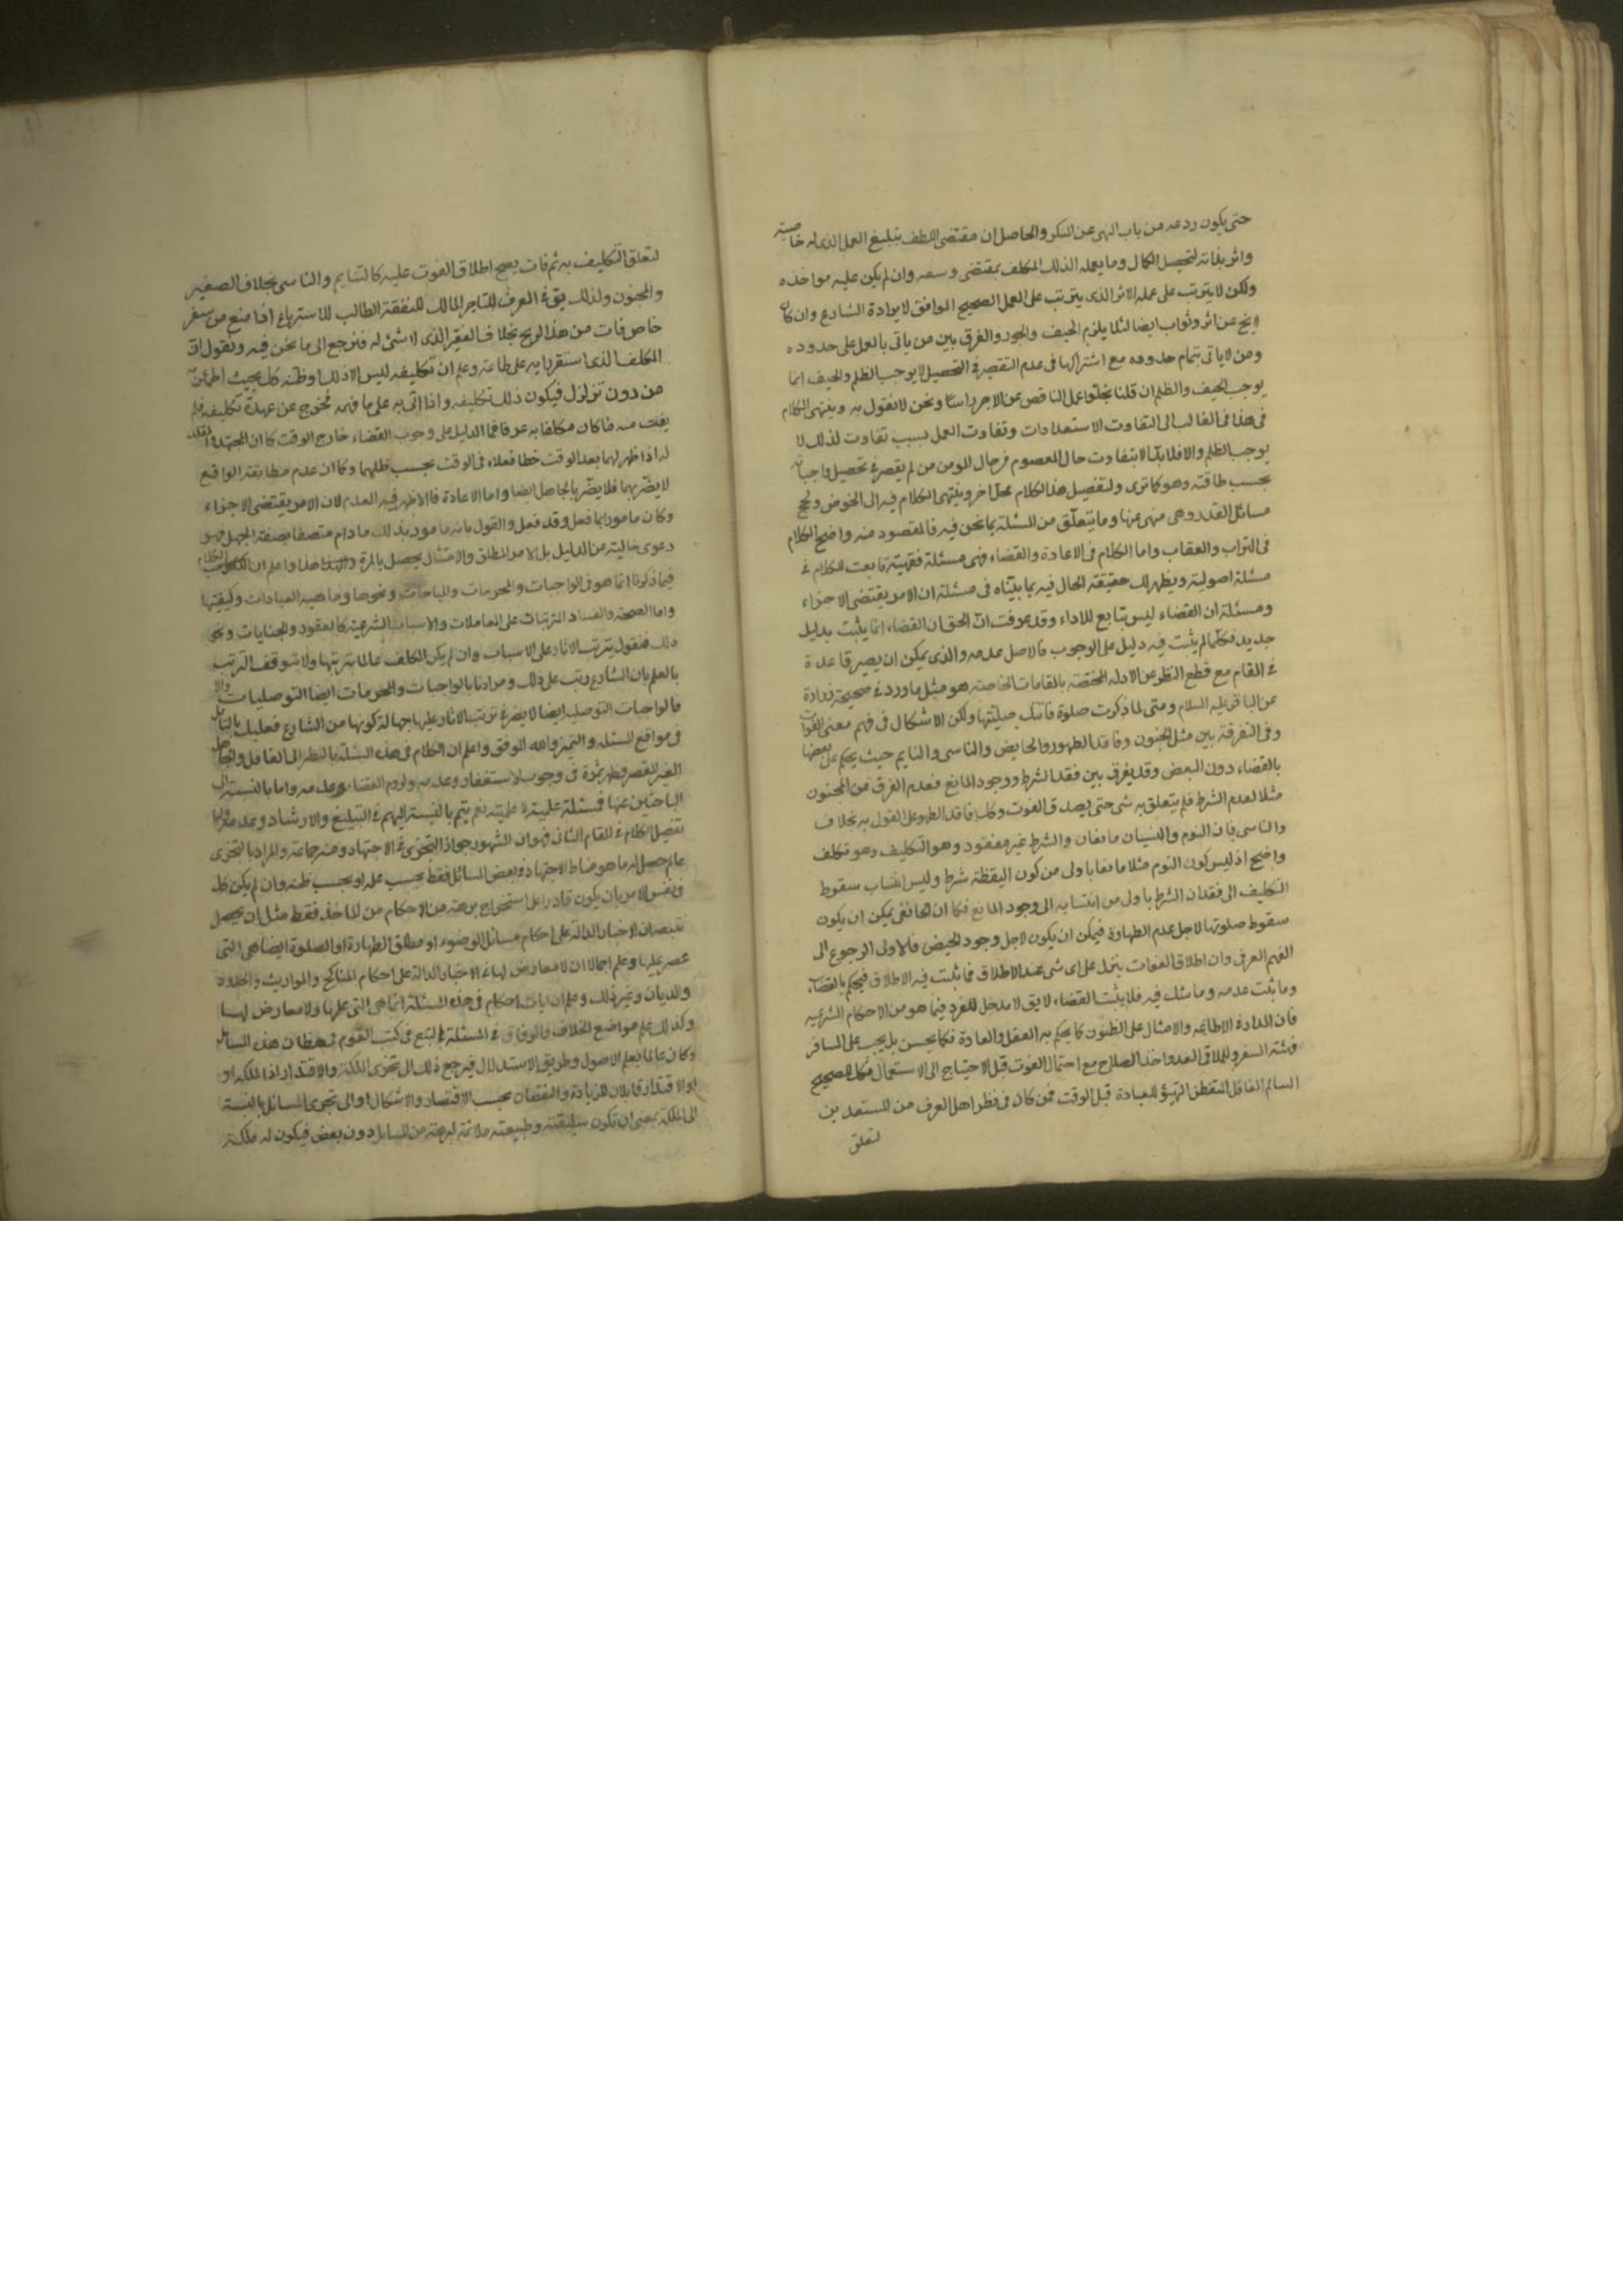 حتى يكون ردعه من باب النهى عن المنكر والحاصل ان مقتضى اللطف تبليغ العمل الذى له خاصية
واثر بذاته لتحصيل الكمال وما يعمله الذلك المكلف بمقتضى وسعه وان لم يكن عليه مواخذه
ولكن لا يترتب على عمله الاثر الذى يترتب على العمل الصحيح الموافق لارادة الشارع وان كان
لايخ عن اثر وثواب ايضا لئلا يلزم الحيف والجور والفرق بين من ياتى بالعمل على حدوده
ومن لاياتى بتمام حدوده مع اشتراكها فى عدم التقصير فى التحصيل لا يوجب الظلم والحيف انما
يوجب الحيف والظلم ان قلنا بخلو عمل الناقص عن الاجر راسا ونحن لا نقول به وينتهى الكلام
فى هذا فى الغالب الى التفاوت الاستعدادات وتفاوت العمل بسبب تفاوت لذلك لا
يوجب الظلم والا فلا بد الا يتفاوت حال المعصوم مع حال المومن من لم يقصر فى تحصيل واجباته
بحسب طاقته وهو كما ترى ولتفصيل هذا الكلام محل آخر وينتهى الكلام فيه الى الخوض ولجج
مسائل القدر وهى منهى عنها وما يتعلق من المسئلة بما نحن فيه فالمقصود منه واضح الكلام
فى الثواب والعقاب واما الكلام فى الاعادة والقضاء فهى مسئلة فقهية تابعت للكلام فى
مسئلة اصولية ويظهر لك حقيقة الحال فيه بما بيناه فى مسئلة ان الامر يقتضى الاجزاء
ومسئلة ان القضاء ليس بتابع للاداء وقد عرفت ان الحق ان القضاء انما يثبت بدليل
جديد فكلما لم يثبت فيه دليل على الوجوب فالاصل عدمه والذى يمكن ان يصير قاعدة
فى المقام مع قطع النظر عن الادله المختصة بالمقامات الخاصة هو مثل ما ورد فى صحيحة زرارة
عن الباقر عليه السلام ومتى ما ذكرت صلوة فاتتك صليتها ولكن الاشكال فى فهم معنى الفوات
وفى التفرقة بين مثل المجنون وفاقد الطهور والحايض والناسى والنايم حيث يحكم على بعضها
بالقضاء دون البعض وقد يفرق بين فقد الشرط ووجود المانع فعدم الفرق من المجنون
مثلا لعدم الشرط فلم يتعلق به شى حتى يصدق الفوت وكذا فاقد الطهور على القول به بخلاف
والناسى فان النوم والنسيان مانعان والشرط غير مفقود وهو التكليف وهو تكلف
واضح اذ ليس كون النوم مثلا مانعا باولى من كون اليقظة شرط وليس انتساب سقوط
التكليف الى فقدان الشرط باولى من انتسابه الى وجود المانع فكما ان الحايض يمكن ان يكون
سقوط صلوتها لاجل عدم الطهارة فيمكن ان يكون لاجل وجود الحيض فالاولى الرجوع الى
الفهم العرفى وان اطلاق الفوات ينزل على اى شى عند الاطلاق فما ثبت فيه الاطلاق فيحكم بالقضاء
وما ثبت عدمه وما شك فيه فلا يثبت القضاء لايق لا مدخل للعرف فيما هو من الاحكام الشرعيه
فان المدار فى الاطاعة والامتثال على الظنون كما يحكم به العقل والعادة فكما يحسن بل يجب على المسافر
تهيئة السفر وللملاقى العدو اخذ الصلاح مع احتمال الفوت قبل الاحتياج الى الاستعمال فكذا الصحيح
السالم الغافل المتفطن التهيؤ للعبادة قبل الوقت فمن كان فى نظر اهل العرف من المستعدين
لتعلق
لتعلق التكليف به ثم فات يصح اطلاق الفوت عليه كالنايم والناسى بخلاف الصغير
والمجنون ولذلك يق فى العرف للتاجر المالك للنفقة الطالب للاسترباح اذا منع من سفر
خاص فات من هذا الربح بخلاف الفقير الذى لا شئ له فنرجع الى ما نحن فيه ونقول ان
المكلف الذى استقر رايه على طاعة وعلم ان تكليفه ليس الا ذلك او ظنه كل بحيث اطمان
من دون تزلزل فيكون ذلك تكليفه واذا اتى به على ما فهمه فخرج عن عهدة تكليفه فلم
يفت منه ما كان مكلفا به عرفا فما الدليل على وجوب القضاء خارج الوقت كما ان المجتهد والمقلد
له اذا ظهر لهما بعد الوقت خطا فعلاه فى الوقت بحسب ظنهما وكما ان عدم مطابقة الواقع
لا يضر بهما فلا يضر بالجاهل ايضا واما الاعادة فالاظهر فيه العدم لان الامر يقتضى الاجزاء
وكان مامورا بما فعل وقد فعل والقول بانه مامور بذلك مادام متصفا بصفة الجهل فهو
دعوى خالية عن الدليل بل الامر المطلق والامتثال يحصل بالمرة هذا واعلم ان الكلام
فيما ذكرنا انما هو فى الواجبات والمحرمات والمباحات ونحوها وماهية العبادات وكيفيتها
واما الصحة والفساد المترتبان على المعاملات والاسباب الشرعية كالعقود والجنايات ونحو
ذلك فنقول يترتب الاثار على الاسباب وان لم يكن المكلف عالما بترتبها ولا يتوقف الترتب
بالعلم بان الشارع رتب على ذلك ومرادنا بالواجبات والمحرمات ايضا التوصليات والا
فالواجبات التوصلية ايضا لا يضر فى ترتب الاثار عليها جهالة كونها من الشارع فعليك بالتامل
فى مواقع المسئلة والتميز والله الموفق واعلم ان الكلام فى هذه المسئلة بالنظر الى الغافل والجاهل
الغير المقصر فظهر ثمرة فى وجوب الاستغفار وعدمه ولزوم القضاء وعدمه واما بالنسبة الى
الباحثين عنها فمسئلة علمية نعم يتم بالنسبة اليهم فى التبليغ والارشاد وعدمه واما
تفصيل الكلام فى المقام الثانى فهو ان المشهور جواز التجزى فى الاجتهاد ومنعه جماعة والمراد بالتجزى
عالم حصل له ما هو مناط الاجتهاد فى بعض المسائل فقط بحسب علمه او بحسب ظنه وان لم يكن كل
فى نفس الامر بان يكون قادرا على استخراج برهة من الاحكام من الماخذ فقط مثل ان يحصل
بتتبعه ان الاخبار الدالة على احكام مسائل الوضوء او مطلق الطهارة او الصلوة ايضا هى التى
عصر عليها وعلم اجمالا ان لا معارض لها فى الاخبار الدالة على احكام المناكح والمواريث والحدود
والديات وغير ذلك وعلم ان ايات احكام فى هذه المسئلة انما هى التى علمها ولا معارض لها
وكذلك علم مواضع الخلاف والوفاق فى المسئلة بالتتبع فى كتب القوم فى مظان هذه المسائل
وكان عالما بعلم الاصول وطريق الاستدلال فيرجع ذلك الى تجزى الملكة والاقتدار اذ الملكه او
او الاقتدار قابلان للزيادة والنقصان بحسب الاقتصار والاشكال او الى تجزى المسائل بالنسبة
الى الملكة بمعنى ان تكون سليقته وطبيعته ملائمة لبرهة من المسائل دون بعض فيكون له ملكة